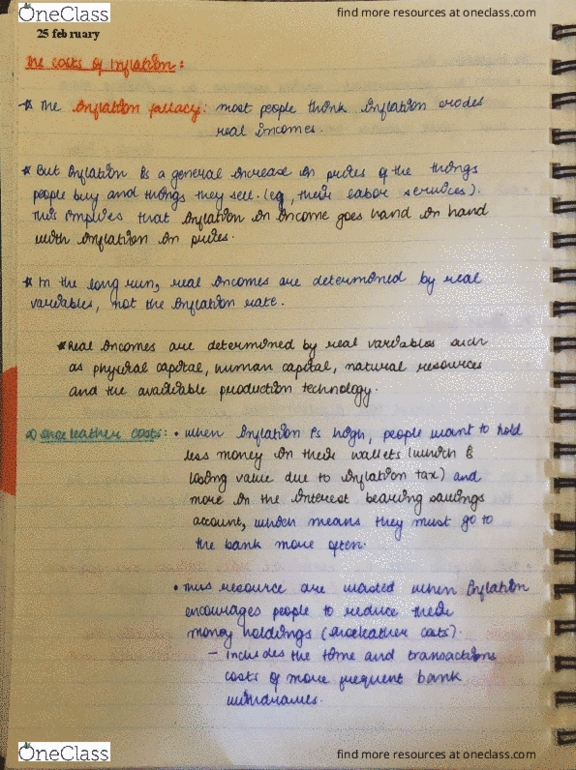 OneClass
find more resources at oneclass.com
25 february
The costs of Inflation:
* The Inflation fallacy: most people think Inflation erodes
real incomes.
* But Inflation is a general increase in prices of the things
people buy and things they sell. (eg, their labor services).
This implies that inflation in income goes hand in hand
with inflation in prices.
* In the long run, real incomes are determined by real
variables, not the inflation rate.
* Real incomes are determined by real variables such
as physical capital, human capital, natural resources
and the available production technology.
Shoeleather costs: • when inflation is high, people want to hold
less money in their wallets (which is
losing value due to inflation tax) and
more in the interest bearing savings
account, which means they must go to
the bank more often.
• Thus resource are wasted when inflation
encourages people to reduce their
money holdings (shoeleather costs).
- Includes the time and transactions
costs of more frequent bank
withdrawals.
OneClass
find more resources at oneclass.com